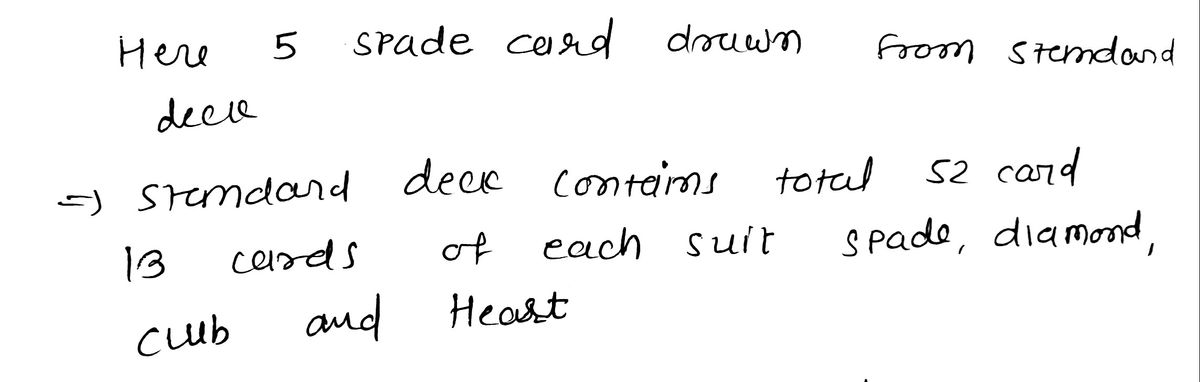 Here 5 spade card drawn from standard
deck
=> standard deck contains total 52 card
13 cards of each suit spade, diamond,
club and Heart